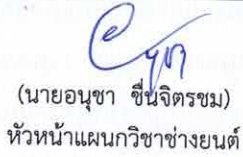 (นายอนุชา ชื่นจิตรชม)
หัวหน้าแผนกวิชาช่างยนต์